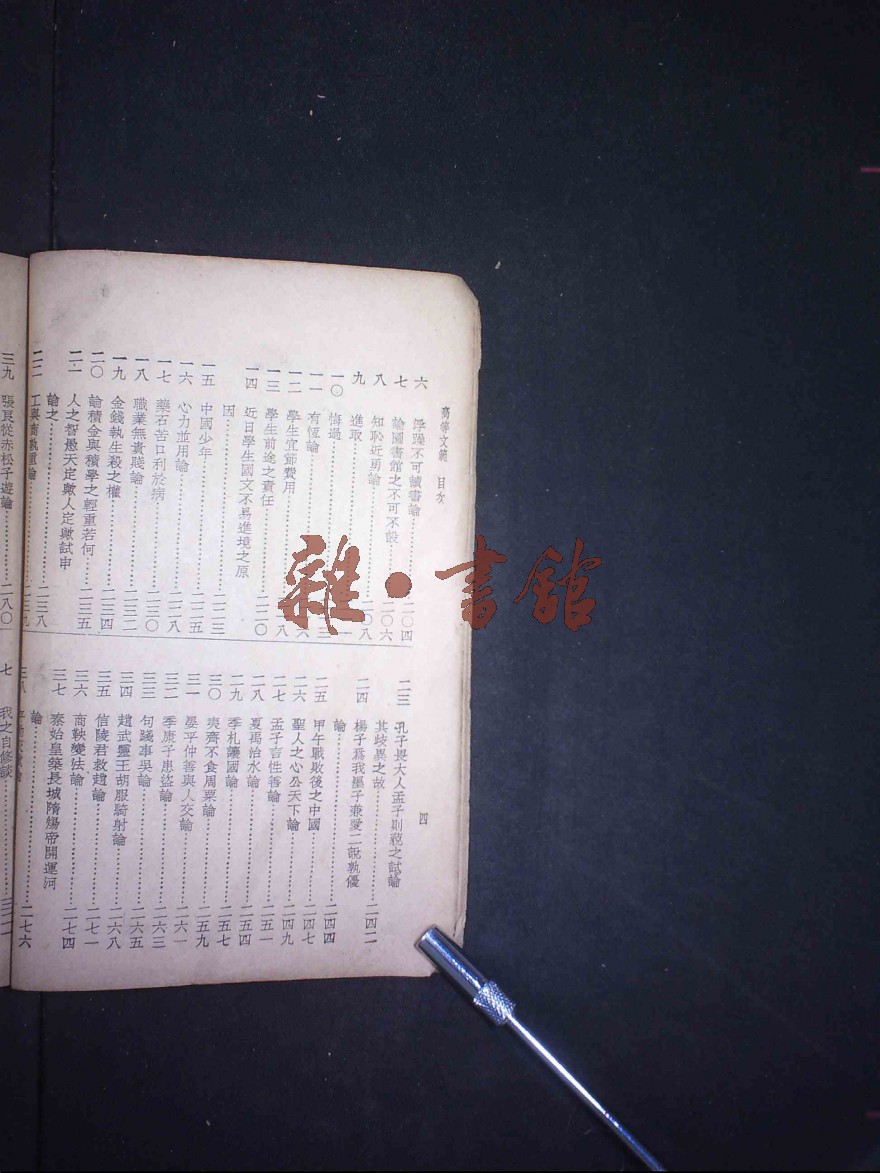 高等文範 目次
六 浮躁不可讀書論……二〇四
七 論圖書館之不可不設……二〇六
八 知恥近勇論……二〇八
九 進取……
一〇 悔過……
一一 有恆論……
一二 學生宜節費用……
一三 學生前途之責任……二二〇
一四 近日學生國文不易進境之原
因……二二三
一五 中國少年……二二五
一六 心力並用論……二二八
一七 藥石苦口利於病……二三〇
一八 職業無貴賤論……二三二
一九 金錢執生殺之權……二三四
二〇 論積金與積學之輕重若何……二三五
二一 人之智愚天定歟人定歟試申
論之……二三八
二二 工與商孰重論……二三九
二三 孔子畏大人孟子則藐之試論
其歧異之故……二四二
二四 楊子爲我墨子兼愛二說孰優
論……二四四
二五 甲午戰敗後之中國……二四七
二六 聖人之心公天下論……二四九
二七 孟子言性善論……二五一
二八 夏禹治水論……二五四
二九 季札讓國論……二五七
三〇 夷齊不食周粟論……二五九
三一 晏平仲善與人交論……二六一
三二 季康子患盜論……二六三
三三 句踐事吳論……二六五
三四 趙武靈王胡服騎射論……二六八
三五 信陵君救趙論……二七一
三六 商鞅變法論……二七四
三七 秦始皇築長城隋煬帝開運河
論……二七六
三八
四
三九 張良從赤松子遊論……二八〇
七 我之自修談……
雜·書館